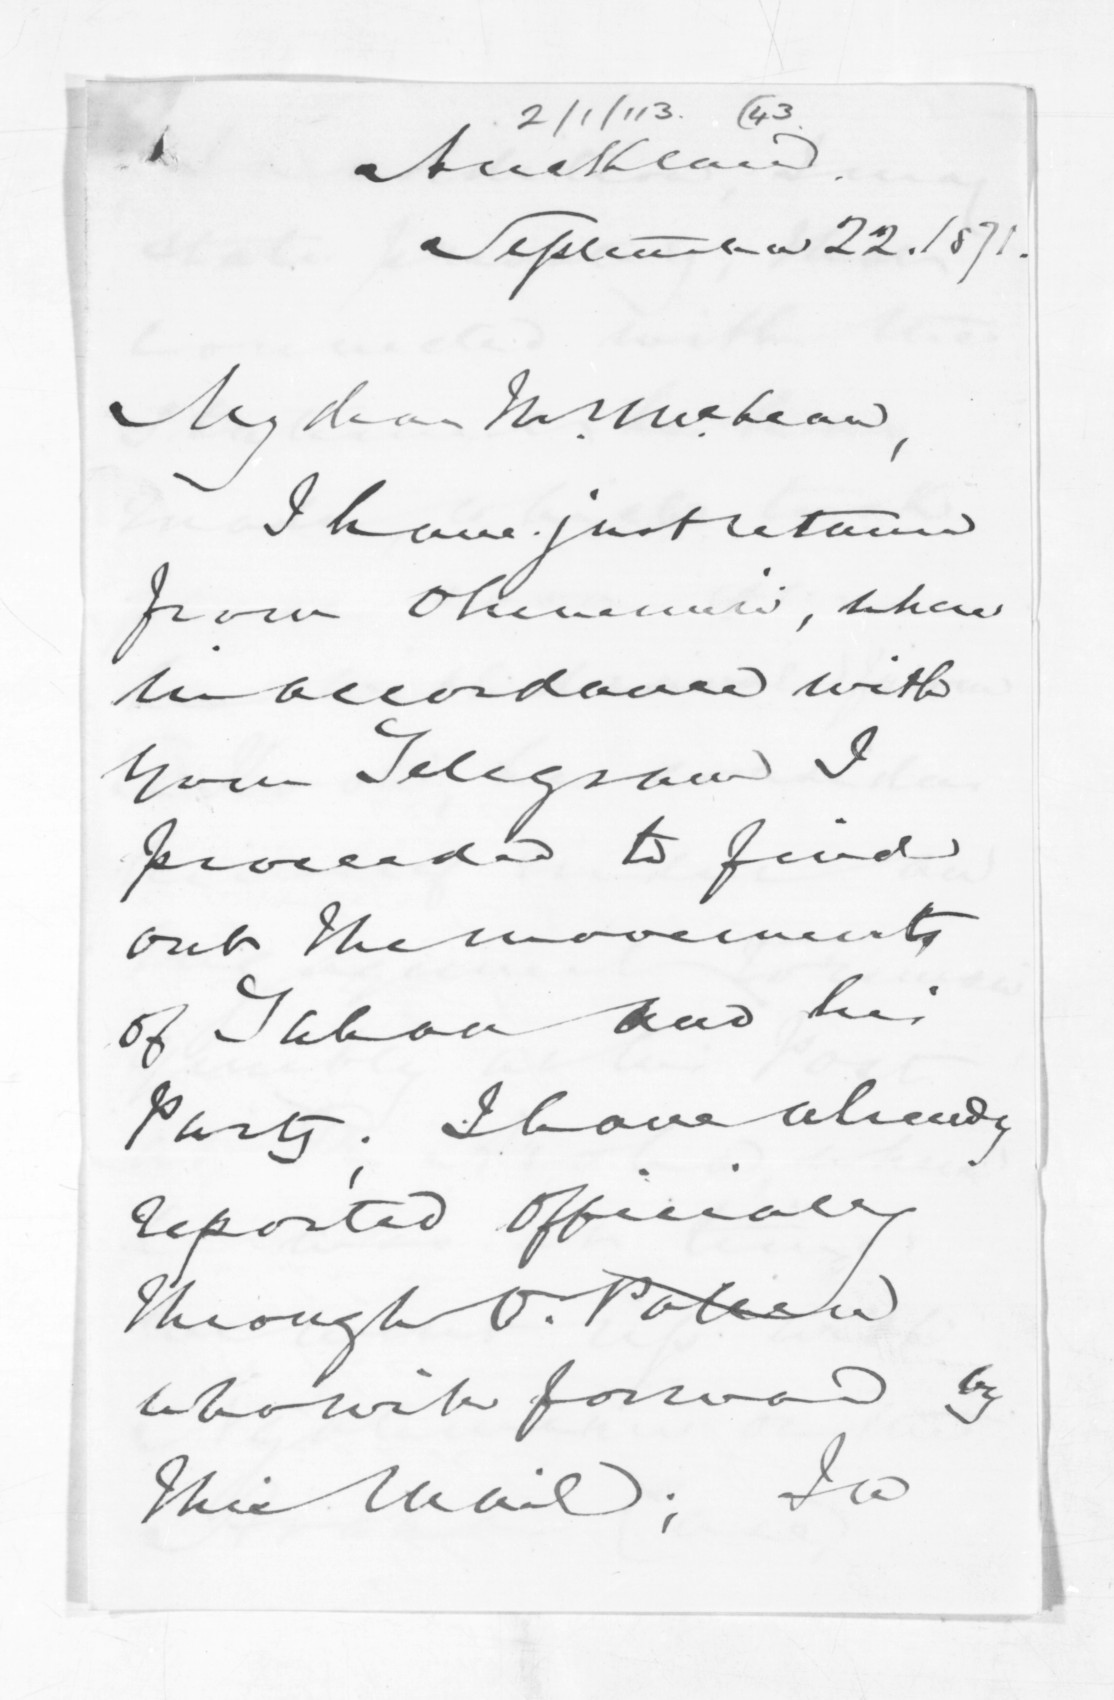 2/1/113. (43.
Auckland.
September 22. 1871.
My dear Mr. McLean,
I have just returned
from Ohinemuri, where
in accordance with
your Telegram I
proceeded to find
out the movements
of and his
Party; I have already
reported officially
through Dr. Pollen
who will forward by
this Mail; In